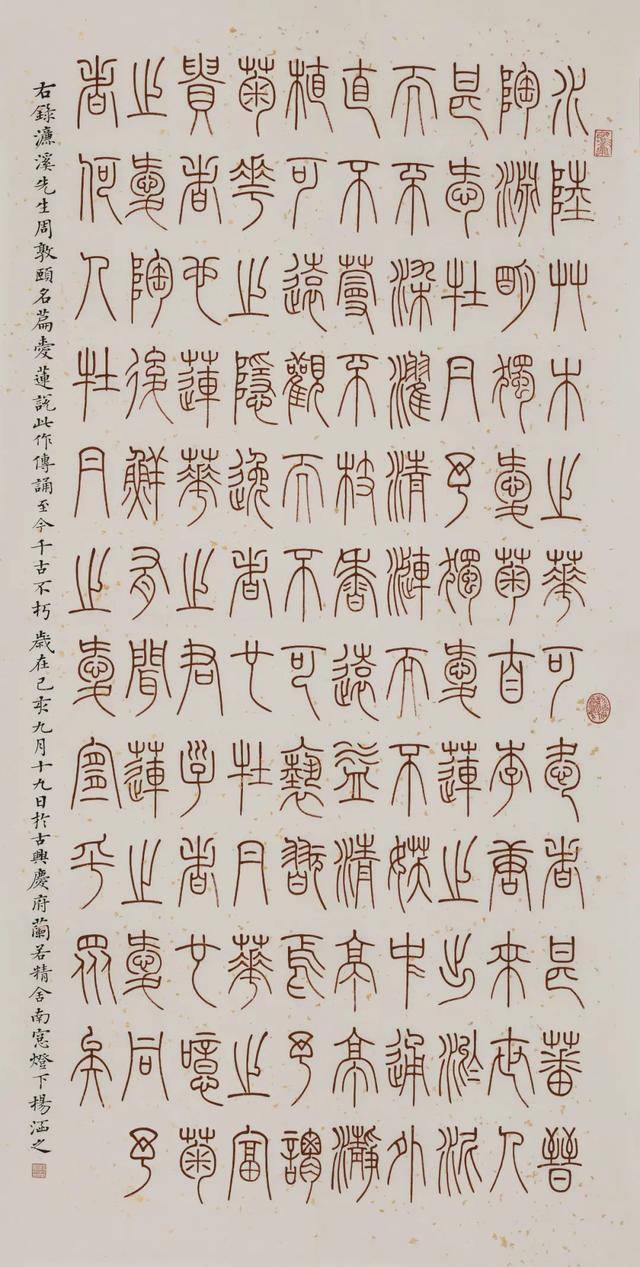 水陸艸木之華可愛者甚蕃晉
陶淵明獨愛菊自李唐來世人
甚愛牡丹予獨愛蓮之出淤泥
而不染濯清漣而不妖中通外
直不蔓不枝香遠益清亭亭瀞
植可遠觀而不可褻翫焉予謂
菊華之隱逸者也牡丹華之富
貴者也蓮華之君子者也噫菊
之愛陶後鮮有聞蓮之愛同予
者何人牡丹之愛宜乎眾矣
右錄濂溪先生周敦頤名篇愛蓮說此作傳誦至今千古不朽 歲在己亥九月十九日於古興慶府蘭若精舍南窓燈下楊涵之